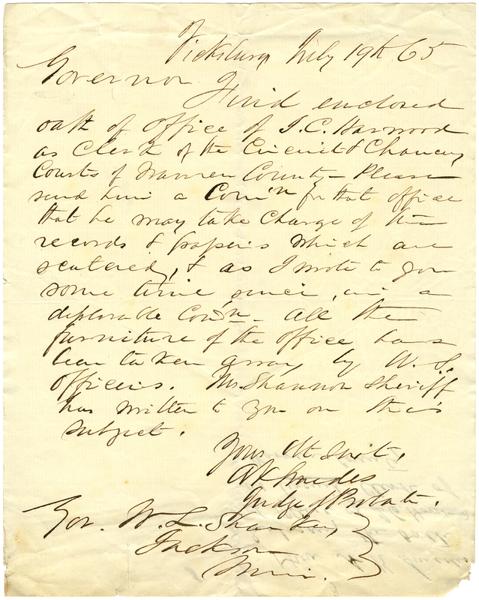 Vicksburg July 19th 65
Governor
Find enclosed
oath of office of J. C. Harwood
as Clerk of the Circuit & Chancery
Courts of Warren County – Please
send him a Comn for that office
that he may take charge of the
records & papers which are
scattered, & as I wrote to you
some time since, in a
deplorable Conn – All the
furniture of the office has
been taken away by U.S.
officers. Mr Shannon Sheriff
has written to you on this
subject.
Your Obt Svt.
Judge of Probate.
Gov. W. L. Sharkey
Jackson
Miss.